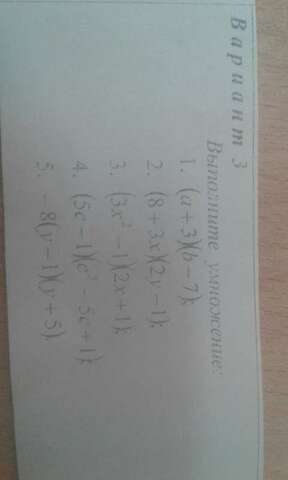 Вариант 3
Выполните умножение:
1. (a + 3)(b − 7);
2. (8 + 3x)(2y − 1);
3. (3x² − 1)(2x + 1);
4. (5c − 1)(c² − 5c + 1);
5. −8(y − 1)(y + 5)